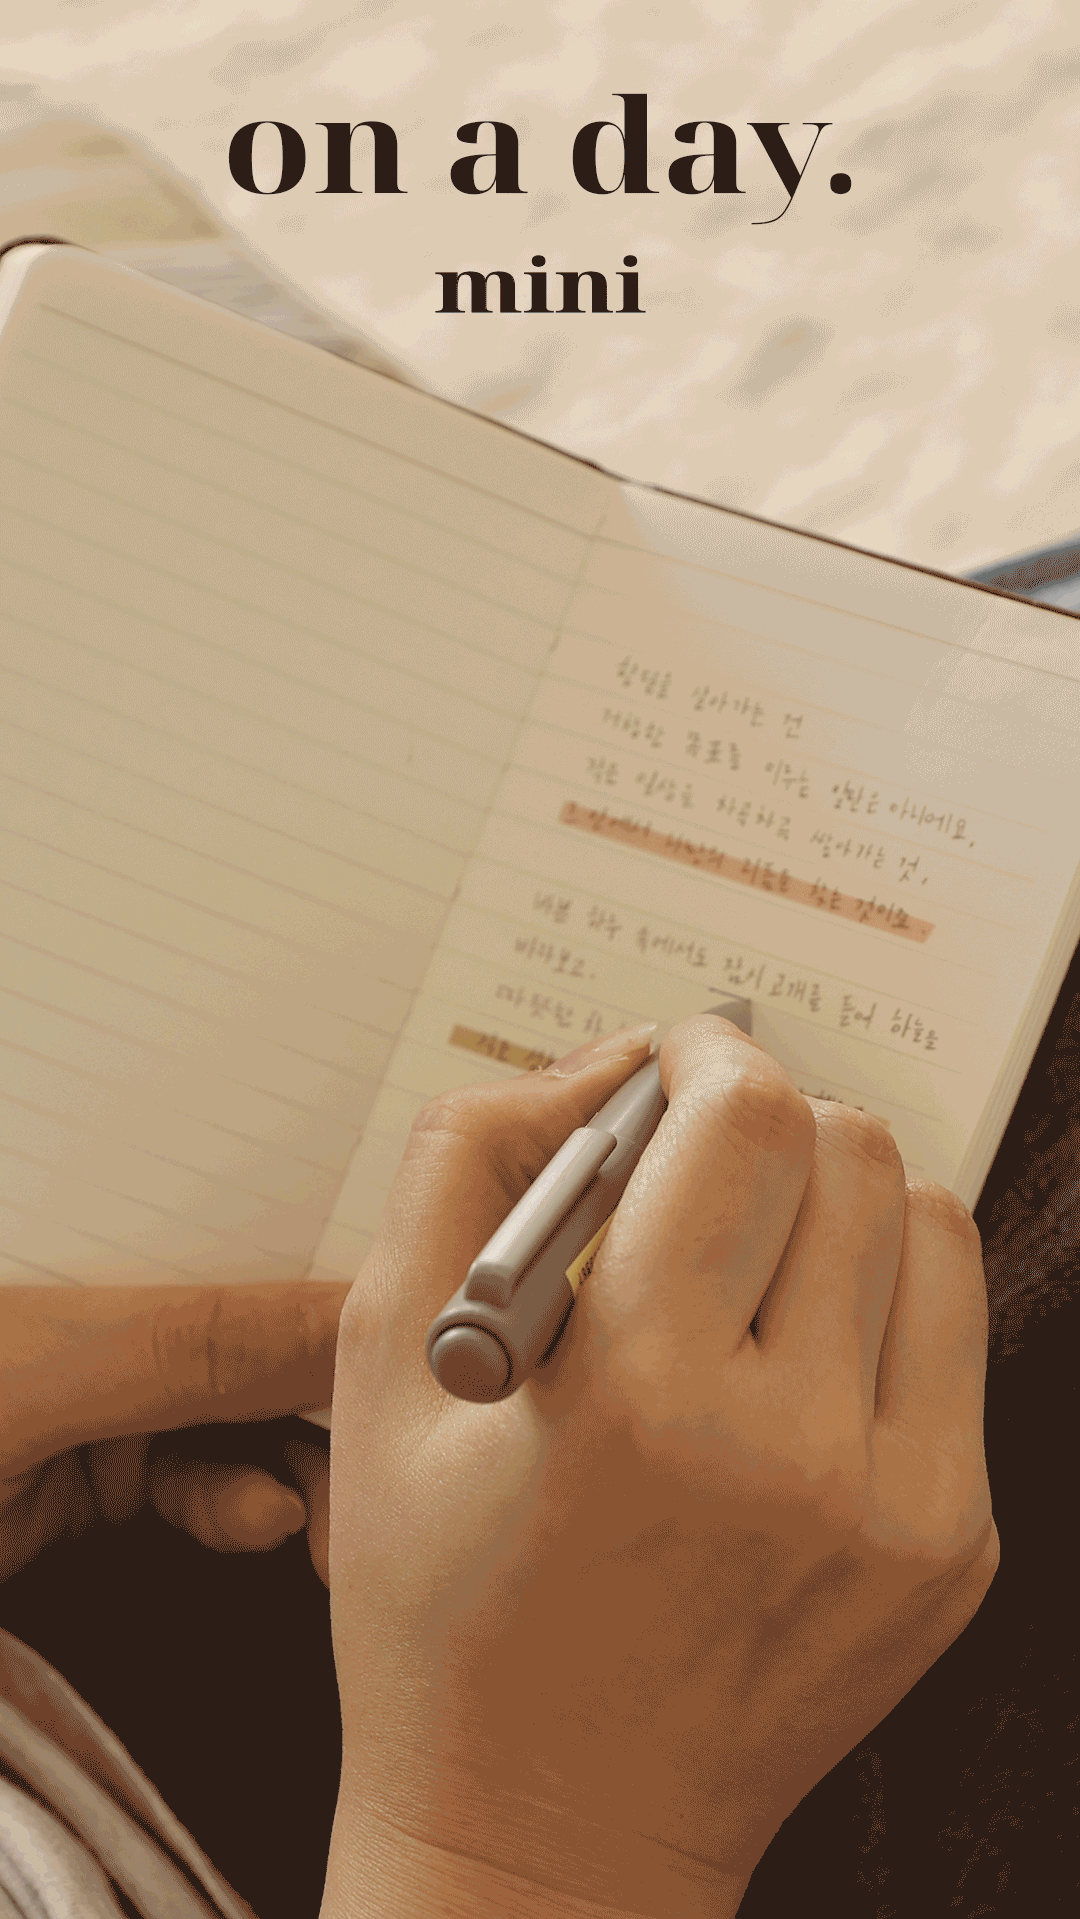 on a day.
mini
살아가는 건
거창한 목표를 이루는 일만은 아니에요.
작은 일상을 차곡차곡 쌓아가는 것,
그 안에서 나만의 리듬을 찾는 것이죠.
바쁜 하루 속에서도 잠시 고개를 들어 하늘을
바라보고,
따뜻한
작은